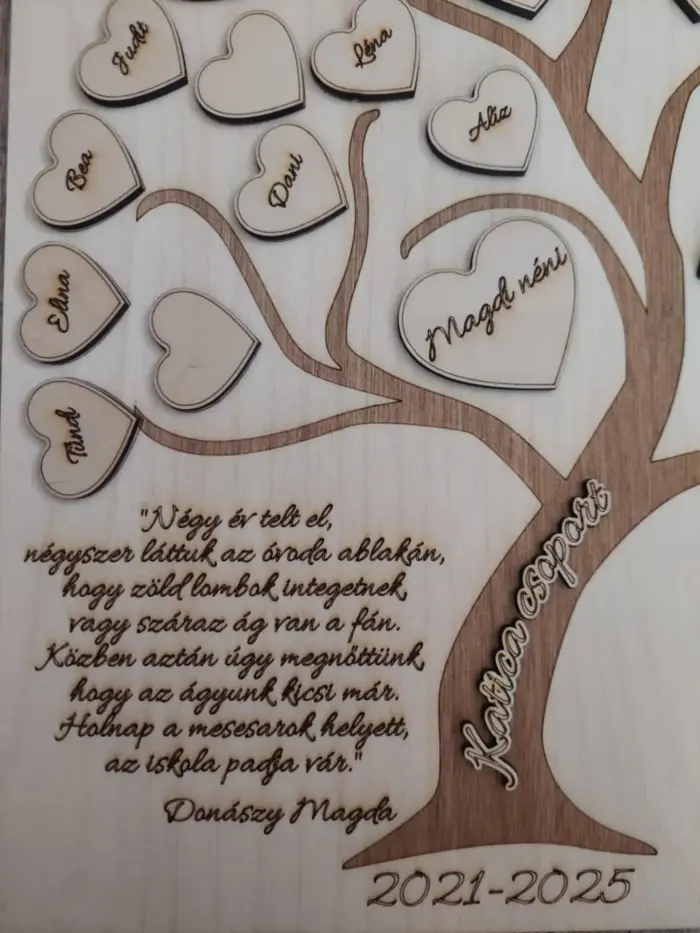 Judit
Léna
Aliz
Bea
Dani
Elina
Magdi néni
Tünd
"Négy év telt el,
négyszer láttuk az óvoda ablakán,
hogy zöld lombok integetnek,
vagy száraz ág van a fán.
Közben aztán úgy megnőttünk,
hogy az ágyunk kicsi már.
Holnap a mesesarok helyett,
az iskola padja vár."
Donászy Magda
Katica csoport
2021-2025